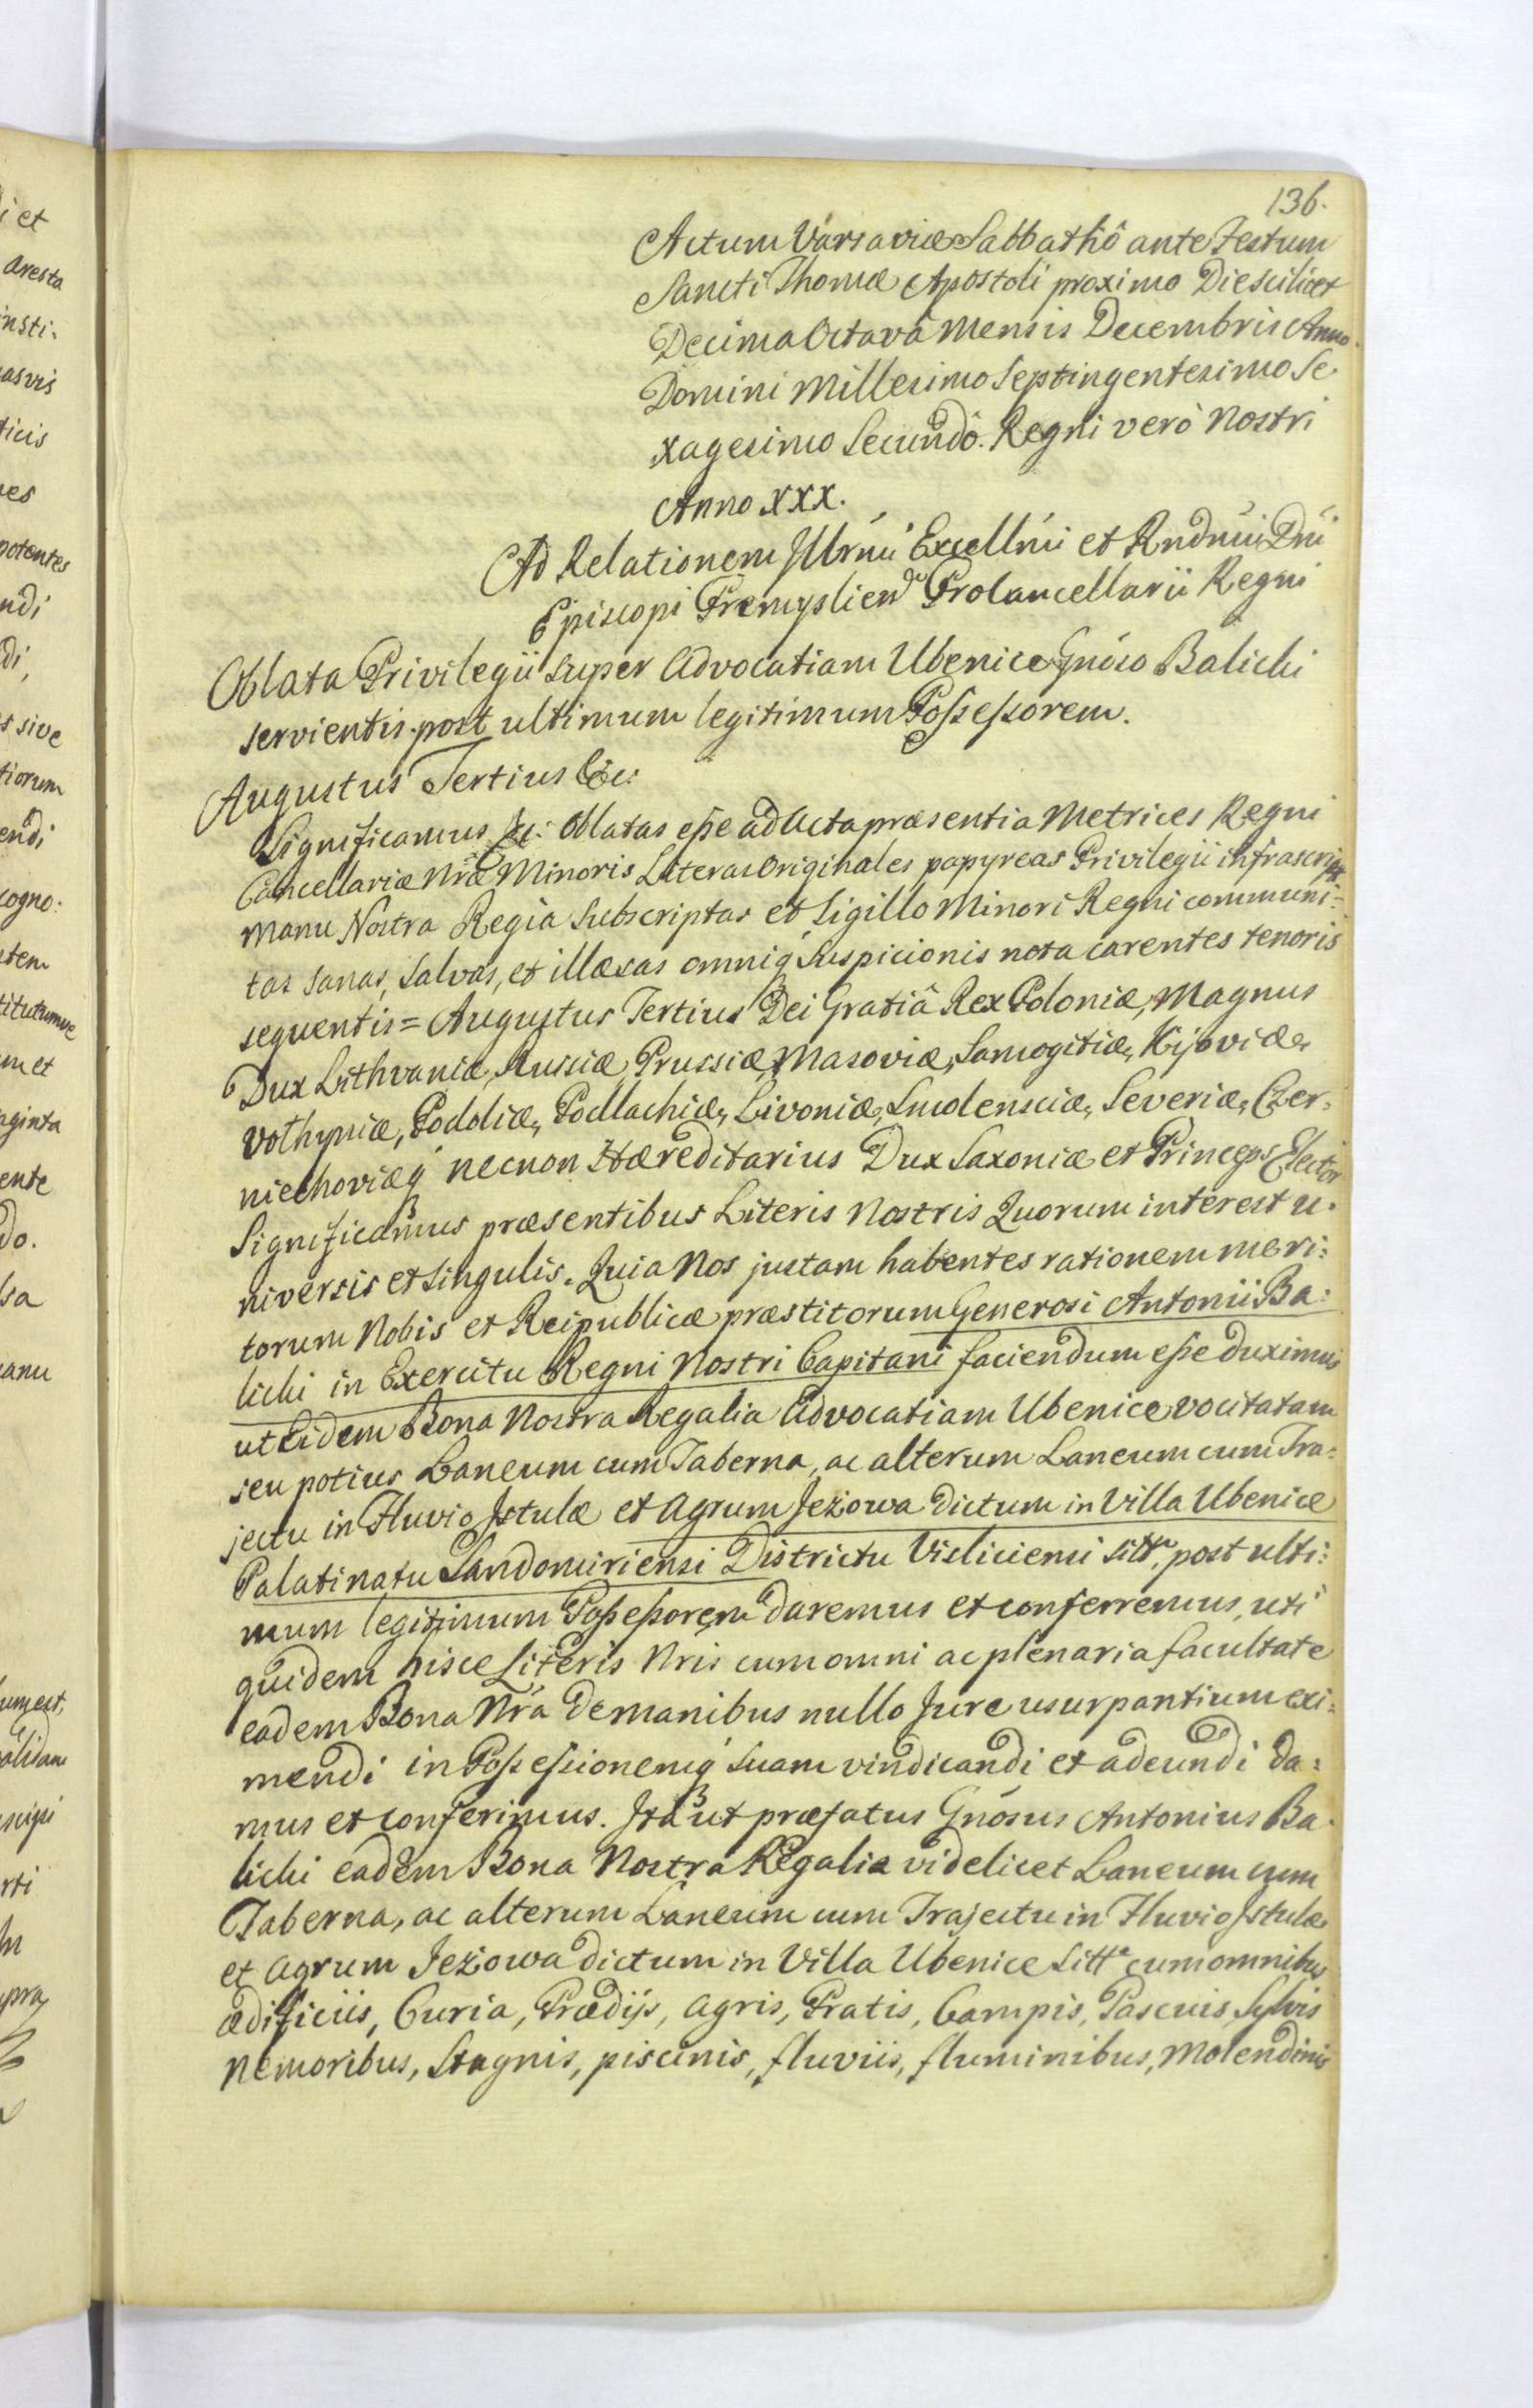 136.
Actum Varsaviæ Sabbathô ante Festum
Sancti Thomæ Apostoli proximo Die scilicet
Decima Octavâ Mensis Decembris Anno
Domini Millesimo Septingentesimo Se-
xagesimo Secundô. Regni verò Nostri
Anno XXX.
Ad Relationem Illrm̃i Excellm̃i et Rndm̃i Dñi
Episcopi Premyslien Procancellarii Regni
Oblata Privilegii super Advocatiam Ubenice Gnóso Balicki
servientis post ultimum legitimum Possessorem.
Augustus Tertius &c:
Significamus &c: Oblatas esse ad Acta præsentia Metrices Regni
Cancellariæ Nr̃æ Minoris Literas Originales papyreas Privilegii infrascripti
manu Nostra Regia Subscriptas et Sigillo Minori Regni communi-
tas sanas, salvas, et illæsas omniq́ Suspicionis nota carentes tenoris
sequentis = Augustus Tertius Dei Gratiâ Rex Poloniæ, Magnus
Dux Lithvaniæ, Russiæ, Prussiæ, Masoviæ, Samogitiæ, Kijoviæ,
Volhyniæ, Podoliæ, Podlachiæ, Livoniæ, Smolensciæ, Severiæ, Czer-
niechoviæq́ necnon Hæreditarius Dux Saxoniæ et Princeps Elector
Significamus præsentibus Literis Nostris Quorum interest u-
niversis et singulis. Quia Nos justam habentes rationem meri:
torum Nobis et Reipublicæ præstitorum Generosi Antonii Ba:
licki in Exercitu Regni Nostri Capitani faciendum esse duximus
ut Eidem Bona Nostra Regalia Advocatiam Ubenice vocitatam
seu potius Laneum cum Taberna, ac alterum Laneum cum Tra:
jectu in Fluvio Istulæ et Agrum Jeżowa dictum in Villa Ubenice
Palatinatu Sandomiriensi Districtu Visliciensi sitt, post ulti:
mum legitimum Possessorem daremus et conferremus, uti
quidem hisce Literis Nris cum omni ac plenaria facultate
eadem Bona Nr̃a de manibus nullo Jure usurpantium exi:
mendi in Possessionemq́ suam vindicandi et adeundi da:
mus et conferimus. Ita ut præfatus Gnósus Antonius Ba-
licki eadem Bona Nostra Regalia videlicet Laneum cum
Taberna, ac alterum Laneum cum Trajectu in Fluvio Istulæ
et Agrum Jeżowa dictum in Villa Ubenice Sitta cum omnibus
ædificiis, Curia, Prædijs, Agris, Pratis, Campis, Pascuis, Sylvis
Nemoribus, Stagnis, piscinis, fluviis, fluminibus, Molendinis